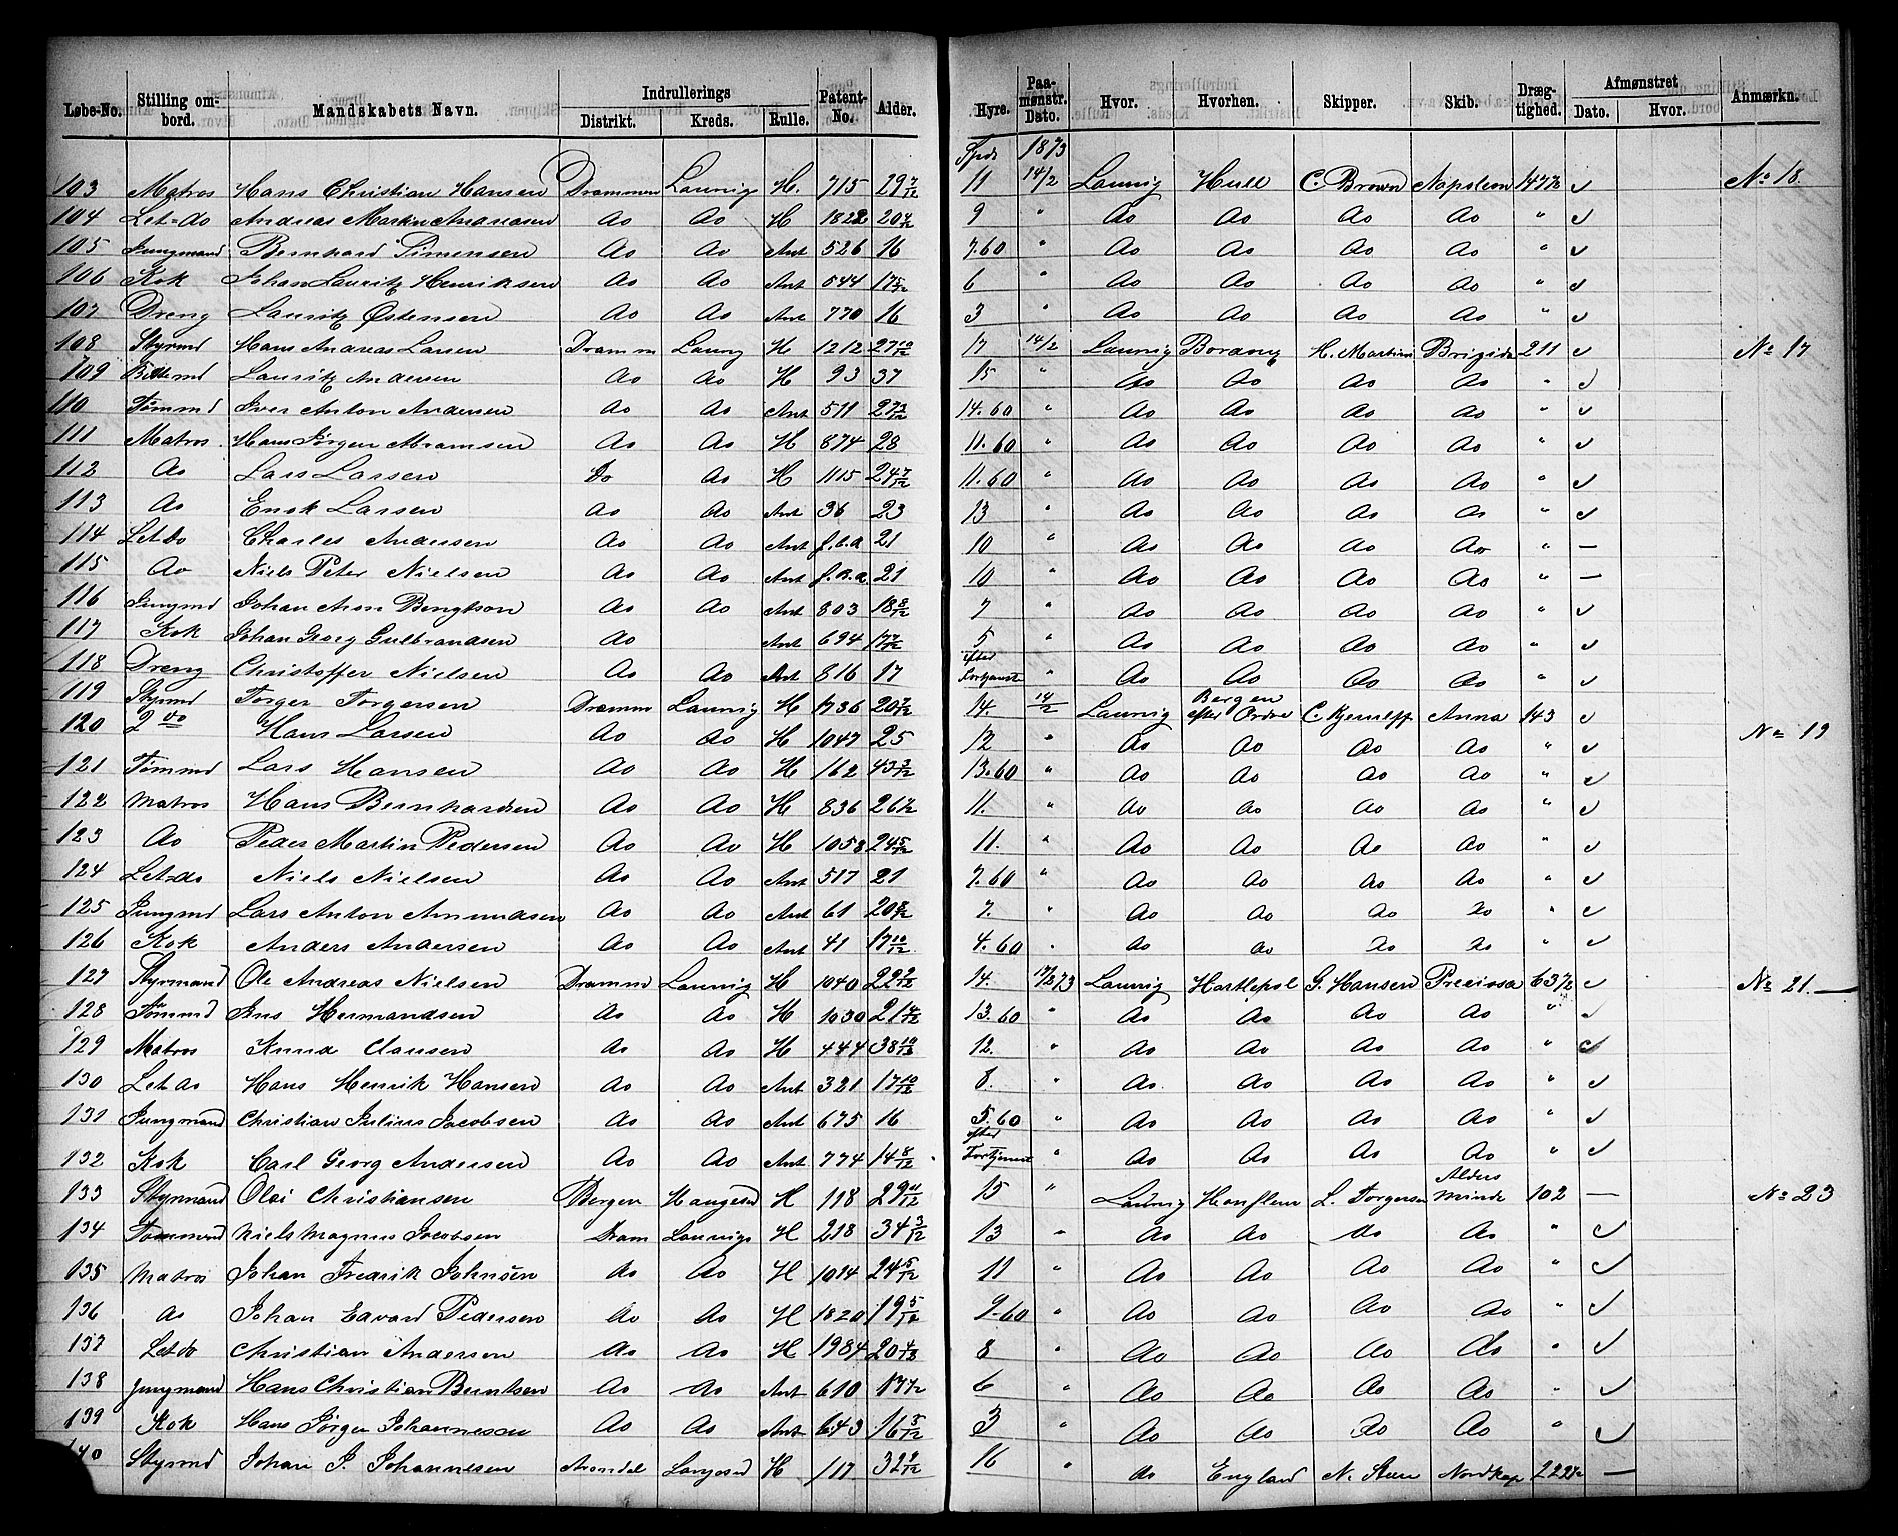 Løbe-No. Stilling ombord. Mandskabets Navn. Indrullerings Distrikt. Kreds. Rulle. Patent-No. Alder. Hyre. Paamønstr. Dato. Hvor. Hvorhen. Skipper. Skib. Drægtighed. Afmønstret Dato. Hvor. Anmærkn.
Spd 1873
103 Matros Hans Christian Hansen Drammen Laurvig H. 715 29 7/12 11 14/2 Laurvig Hull C. Brown Napoleon 147½ ✓ No 18.
104 Let-do Andreas Martin Andreasen do do H 1822 20 do do do do " ✓
105 Jungmand Bernhard Simensen do do Ant 526 16 7.60 " do do do do " ✓
106 Kok Johan Lauritz Henriksen do do Ant 544 17 5/12 6 " do do do do " ✓
107 Dreng Lauritz Østensen do do Ant 770 16 3 " do do do do " ✓
108 Styrmd Hans Andreas Larsen Dramm Laurvig H 1212 27 10/12 17 14/2 Laurvig H. Martin Brigide 211 ✓ No 17
109 Lauritz Andersen do do H 93 37 15 " do do do do " ✓
110 Tømmd Iver Anton Andersen do do Ant 511 27 3/12 14.60 " do do do do " ✓
111 Matros Hans Jørgen Abramsen do do H 874 28 11.60 " do do do do " ✓
112 do Lars Larsen Do do H 1115 24 7/12 11.60 " do do do do " ✓
113 do Larsen do do Ant 36 23 13 " do do do do " ✓
114 Let-do Charles Andersen do do Ant 21 10 " do do do do " —
115 do Niels Peter Nielsen do do Ant 21 10 " do do do do " —
116 Jungmd Johan Aron Bengtson do do Ant 803 18 8/12 7 " do do do do " ✓
117 Kok Johan Georg Gulbrandsen do Ant 694 17 7/12 5 " do do do do " ✓
118 Dreng Christoffer Nielsen do do Ant 816 17 efter Fortjeneste " do do do do " ✓
119 Styrmd Torger Torgersen Dramm Laurvig H 1736 20 7/12 14. 14/2 Laurvig Bergen efter Ordre Anna 143 ✓ No 19
120 2 do Hans Larsen do do H 1047 25 12 " do do do do " ✓
121 Tømmd Lars Hansen do do H 162 43 3/12 13.60 " do do do do " ✓
122 Matros Hans Bernhardsen do do H 836 26 11. " do do do do " ✓
123 do Peder Martin Pedersen do do H 1058 24 5/12 11. " do do do do " ✓
124 Let-do Niels Nielsen do do Ant 517 21 7.60 " do do do do " ✓
125 Jungmd Lars Anton Amundsen do do Ant 61 20 8/12 7. " do do do do " ✓
126 Kok Anders Andersen do do Ant 41 17 10/12 4.60 " do do do do " ✓
127 Styrmand Ole Andreas Nielsen Dramm Laurvig H 1040 22 2/12 14. 17/2 73 Laurvig Hartlepol G. Hansen Preciosa 63½ ✓ No 21.
128 Tømmd Jens Hermandsen do do H 1030 21 13.60 " do do do do " ✓
129 Matros Knud Clausen do do H 444 38 10/12 12. " do do do do " ✓
130 Let do Hans Henrik Hansen do do Ant 321 17 10/12 8. " do do do do " ✓
131 Jungmand Christian Julius Jacobsen do do Ant 675 16 5.60 " do do do do " ✓
132 Kok Carl Georg Andersen do do Ant 774 14 8/12 efter Fortjeneste " do do do do " ✓
133 Styrmand Olai Christiansen Bergen Haugesd H 118 29 11/12 15 " Laurvig Honfleur L. Torgersen Alders Minde 102 — No 23
134 Tømmend Niels Magnus Jacobsen Dram Laurvigs H 218 34 3/12 13 " do do do do " ✓
135 Matros Johan Fredrik Johnsen do do H 1014 24 5/12 11 " do do do do " ✓
136 do Johan Edvard Pedersen do do H 1820 19 5/12 9.60 " do do do do " ✓
137 Let do Christian Andersen do do H 1984 20 4/12 8 " do do do do " ✓
138 Jungmand Hans Christian Berntsen do do Ant 610 17 6 " do do do do " ✓
139 Kok Hans Jørgen Johannesen do do Ant 643 16 8/12 3 " do do do do " ✓
140 Styrmd Johan J. Johannesen Arendal Langesd H 117 32 16 " do England N. Steen Nordkap 222½ —